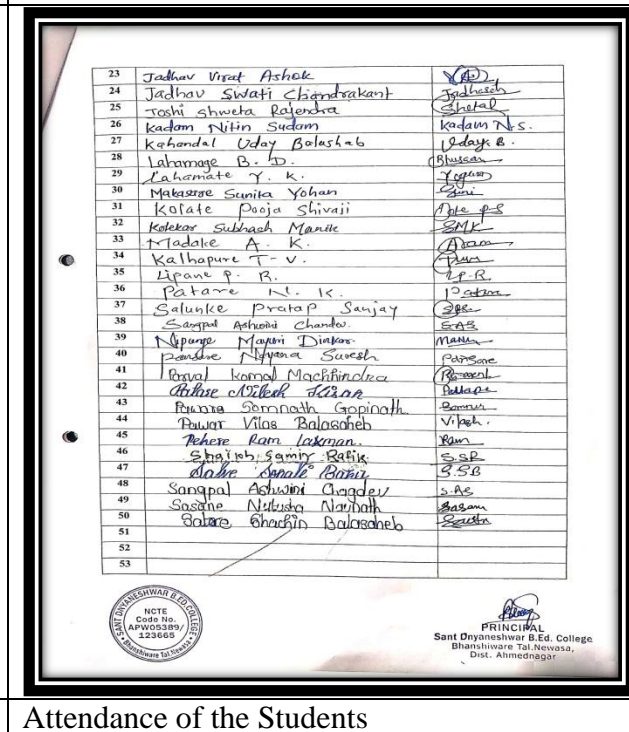 23 Jadhav Virat Ashok
24 Jadhav Swati Chandrakant Jadhavsch
25 Joshi Shweta Rajendra Shetal
26 Kadam Nitin Sudam Kadam N.S.
27 Kahandal Uday Balashab Uday. B.
28 Lahamage B. D. Bhusan
29 Lahamate Y. K.
30 Makasare Sunita Yohan Suni
31 Kolate Pooja Shivaji P.S
32 Kolekar Subhash Manik SMK
33 Madake A. K.
34 Kalhapure T. V.
35 Lipane P. R. L.P.R.
36 Patare N. K.
37 Salunke Pratap Sanjay SPS
38 Sangpal Ashwini Chandev. SAS
39 Nipunge Mayuri Dinkar
40 Pansare Nayana Suresh Pansare
41 Parval Komal Machhindra
42 Pathse Nilesh Kisan
43 Pawara Somnath Gopinath
44 Pawar Vilas Balasaheb Vilash.
45 Pehere Ram Laxman. Ram
46 Shaikh Samir Rafik S.SR
47 Salve Sonali S.SB
48 Sangpal Ashwini Changdev S.AS
49 Sasane Nutusha Navnath Sasane
50 Satore Shachin Balasaheb
51
52
53
SANT DNYANESHWAR B.ED. COLLEGE
NCTE
Code No.
APW05389/
123665
Bhanshiware Tal.Newasa
PRINCIPAL
Sant Dnyaneshwar B.Ed. College
Bhanshiware Tal.Newasa,
Dist. Ahmednagar
Attendance of the Students